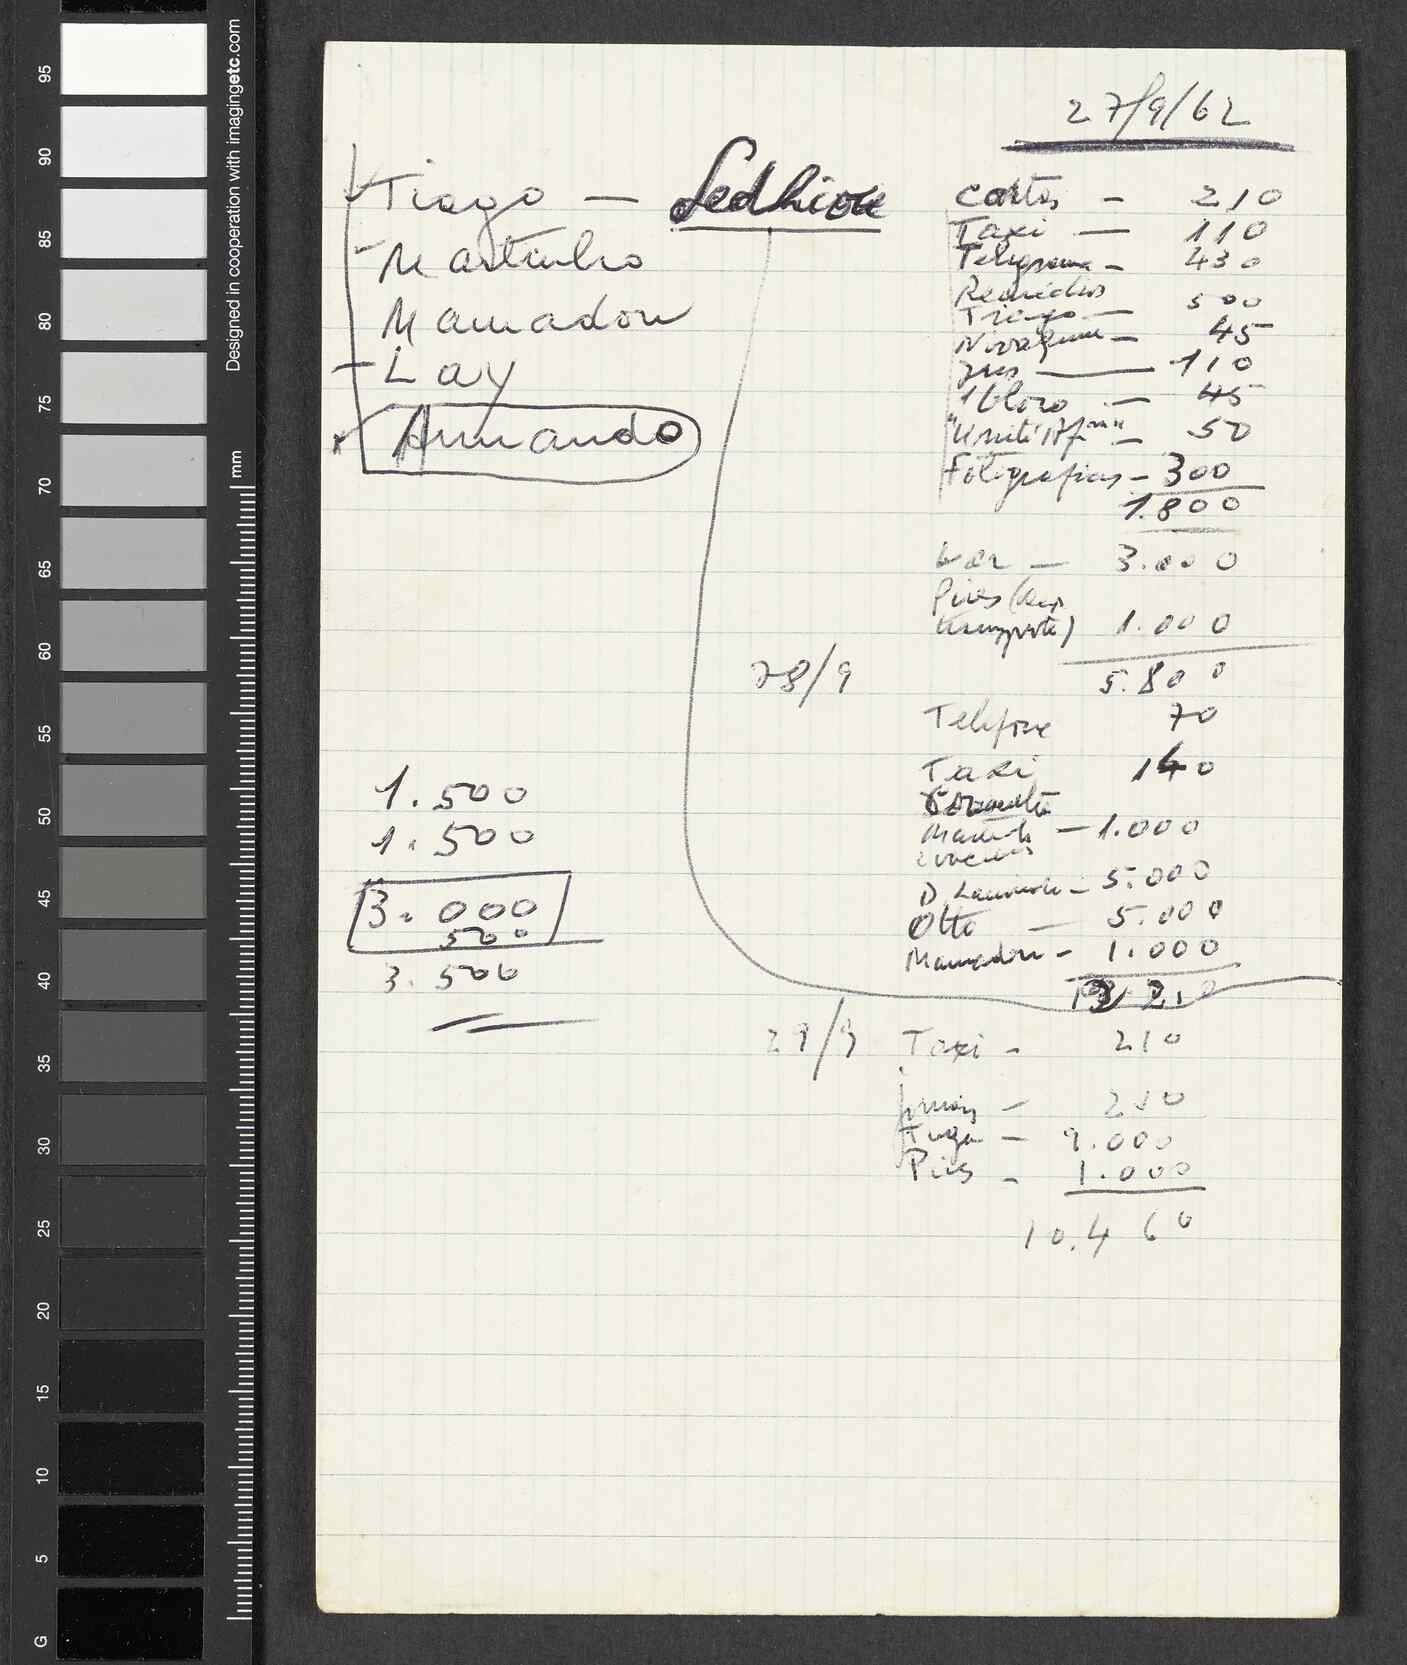 27/9/62
Tiago — Sedhiou
Martinho
Mamadou
Lay
Armando
Cartas — 210
Taxi — 110
Telegrama — 430
Remédios
Tiago — 500
Nivaquine — 45
Jus — 110
1 bloco — 45
"Unité Afne" — 50
Fotografias — 300
1.800
3.000
Pires
transporte) 1.000
5.800
28/9
Telefone 70
Taxi 140
— 1.000
D. — 5.000
Otto — 5.000
Mamadou — 1.000
1.500
1.500
3.000
500
3.500
29/9 Taxi — 210
9.000
Pires — 1.000
10.460
95
90
85
80
75
70
65
60
55
50
45
40
35
30
25
20
15
10
5
G
mm
Designed in cooperation with imagingetc.com